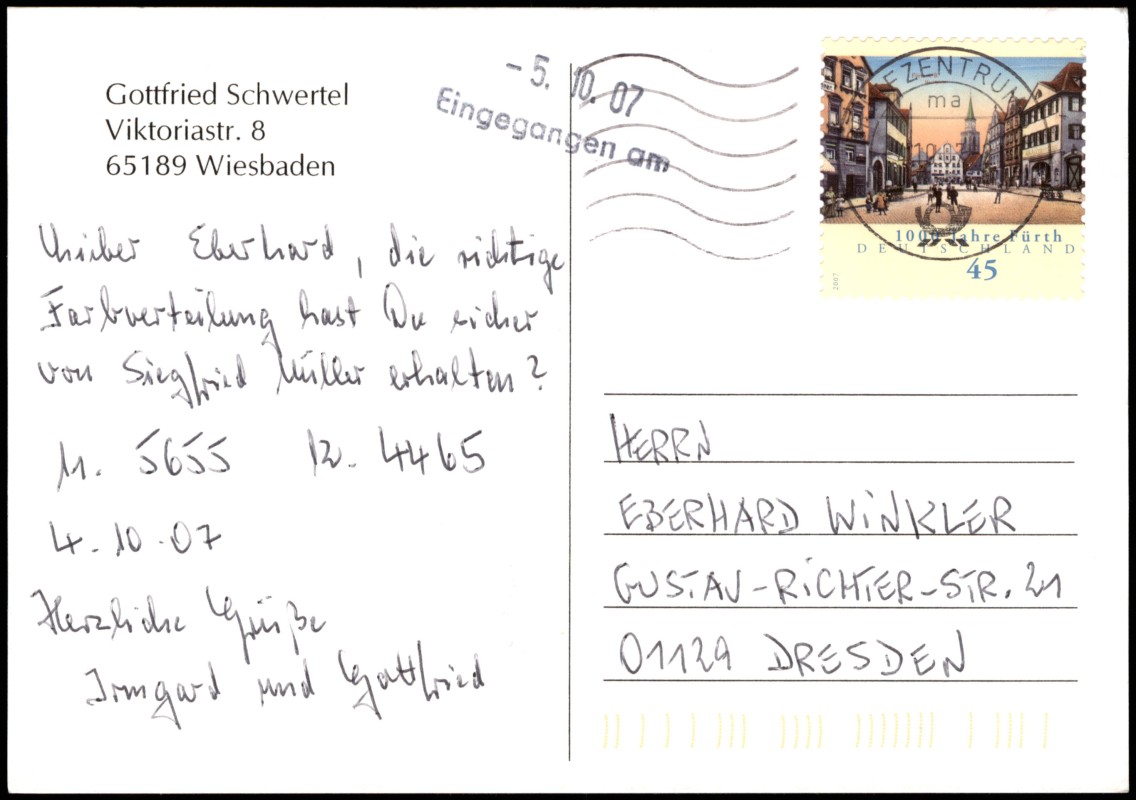 Gottfried Schwertel
Viktoriastr. 8
65189 Wiesbaden
Eberhard, die richtige
Farbverteilung hast Du sicher
von Siegfried Müller erhalten?
11. 5655 12. 4465
4.10.07
Herzliche Grüße
Irmgard und Gottfried
- 5. 10. 07
Eingegangen am
EZENTRUM
ma
1000 Jahre Fürth
DEUTSCHLAND
45
2007
HERRN
EBERHARD WINKLER
GUSTAV-RICHTER-STR. 21
01129 DRESDEN